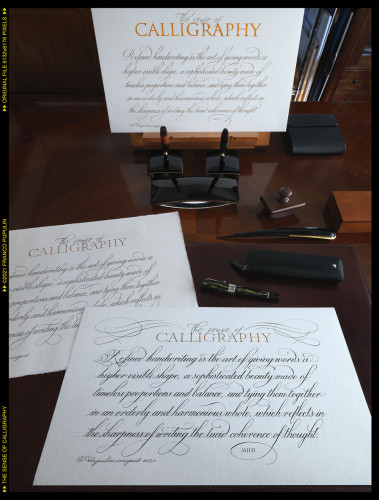 The sense of
CALLIGRAPHY
Refined handwriting is the art of giving words a
higher visible shape, a sophisticated beauty made of
timeless proportions and balance, and tying them together
in an orderly and harmonious whole, which reflects in
the sharpness of writing the lucid coherence of thought.
The sense of
CALLIGRAPHY
handwriting is the art of giving words a
visible shape, a sophisticated beauty made of
proportions and balance, and tying them together
orderly and harmonious whole, which reflects in
of writing the
The sense of
CALLIGRAPHY
Refined handwriting is the art of giving words a
higher visible shape, a sophisticated beauty made of
timeless proportions and balance, and tying them together
in an orderly and harmonious whole, which reflects in
the sharpness of writing the lucid coherence of thought.
THE SENSE OF CALLIGRAPHY
©2021 FRANCO PUPULIN
ORIGINAL FILE 6132x8176 PIXELS